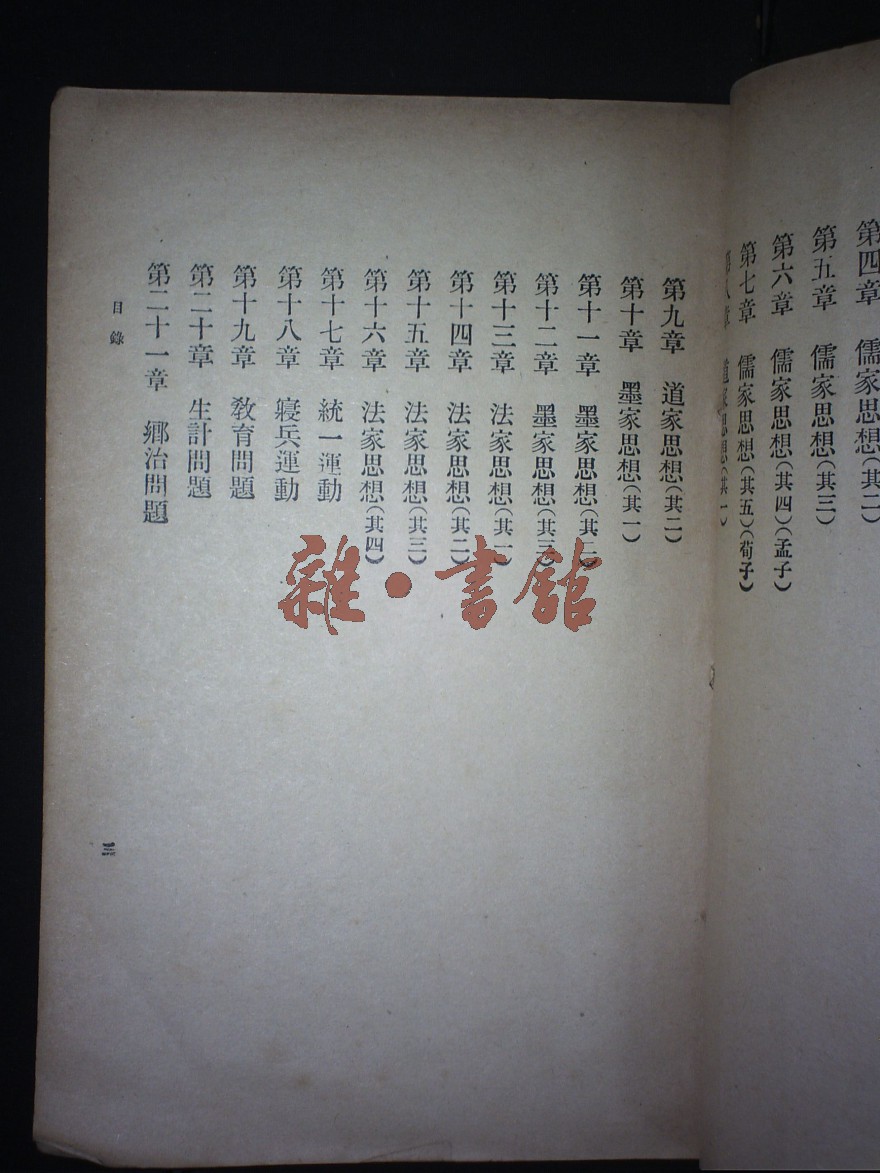 第四章　儒家思想(其二)
第五章　儒家思想(其三)
第六章　儒家思想(其四)(孟子)
第七章　儒家思想(其五)(荀子)
第八章　道家思想(其一)
第九章　道家思想(其二)
第十章　墨家思想(其一)
第十一章　墨家思想(其二)
第十二章　墨家思想(其三)
第十三章　法家思想(其一)
第十四章　法家思想(其二)
第十五章　法家思想(其三)
第十六章　法家思想(其四)
第十七章　統一運動
第十八章　寢兵運動
第十九章　教育問題
第二十章　生計問題
第二十一章　鄉治問題
目錄
三
雜·書館